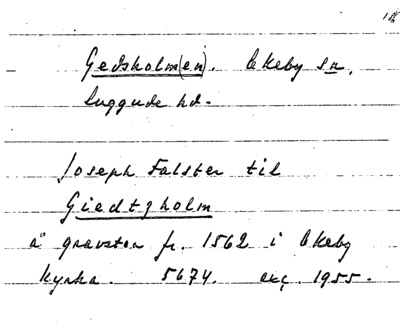 Gedsholm(en). Ekeby sn,
luggude hd.
Joseph Falster til
Giedtzholm
å gravsten fr. 1562 i Ekeby
kyrka. 5674. exc. 1955.